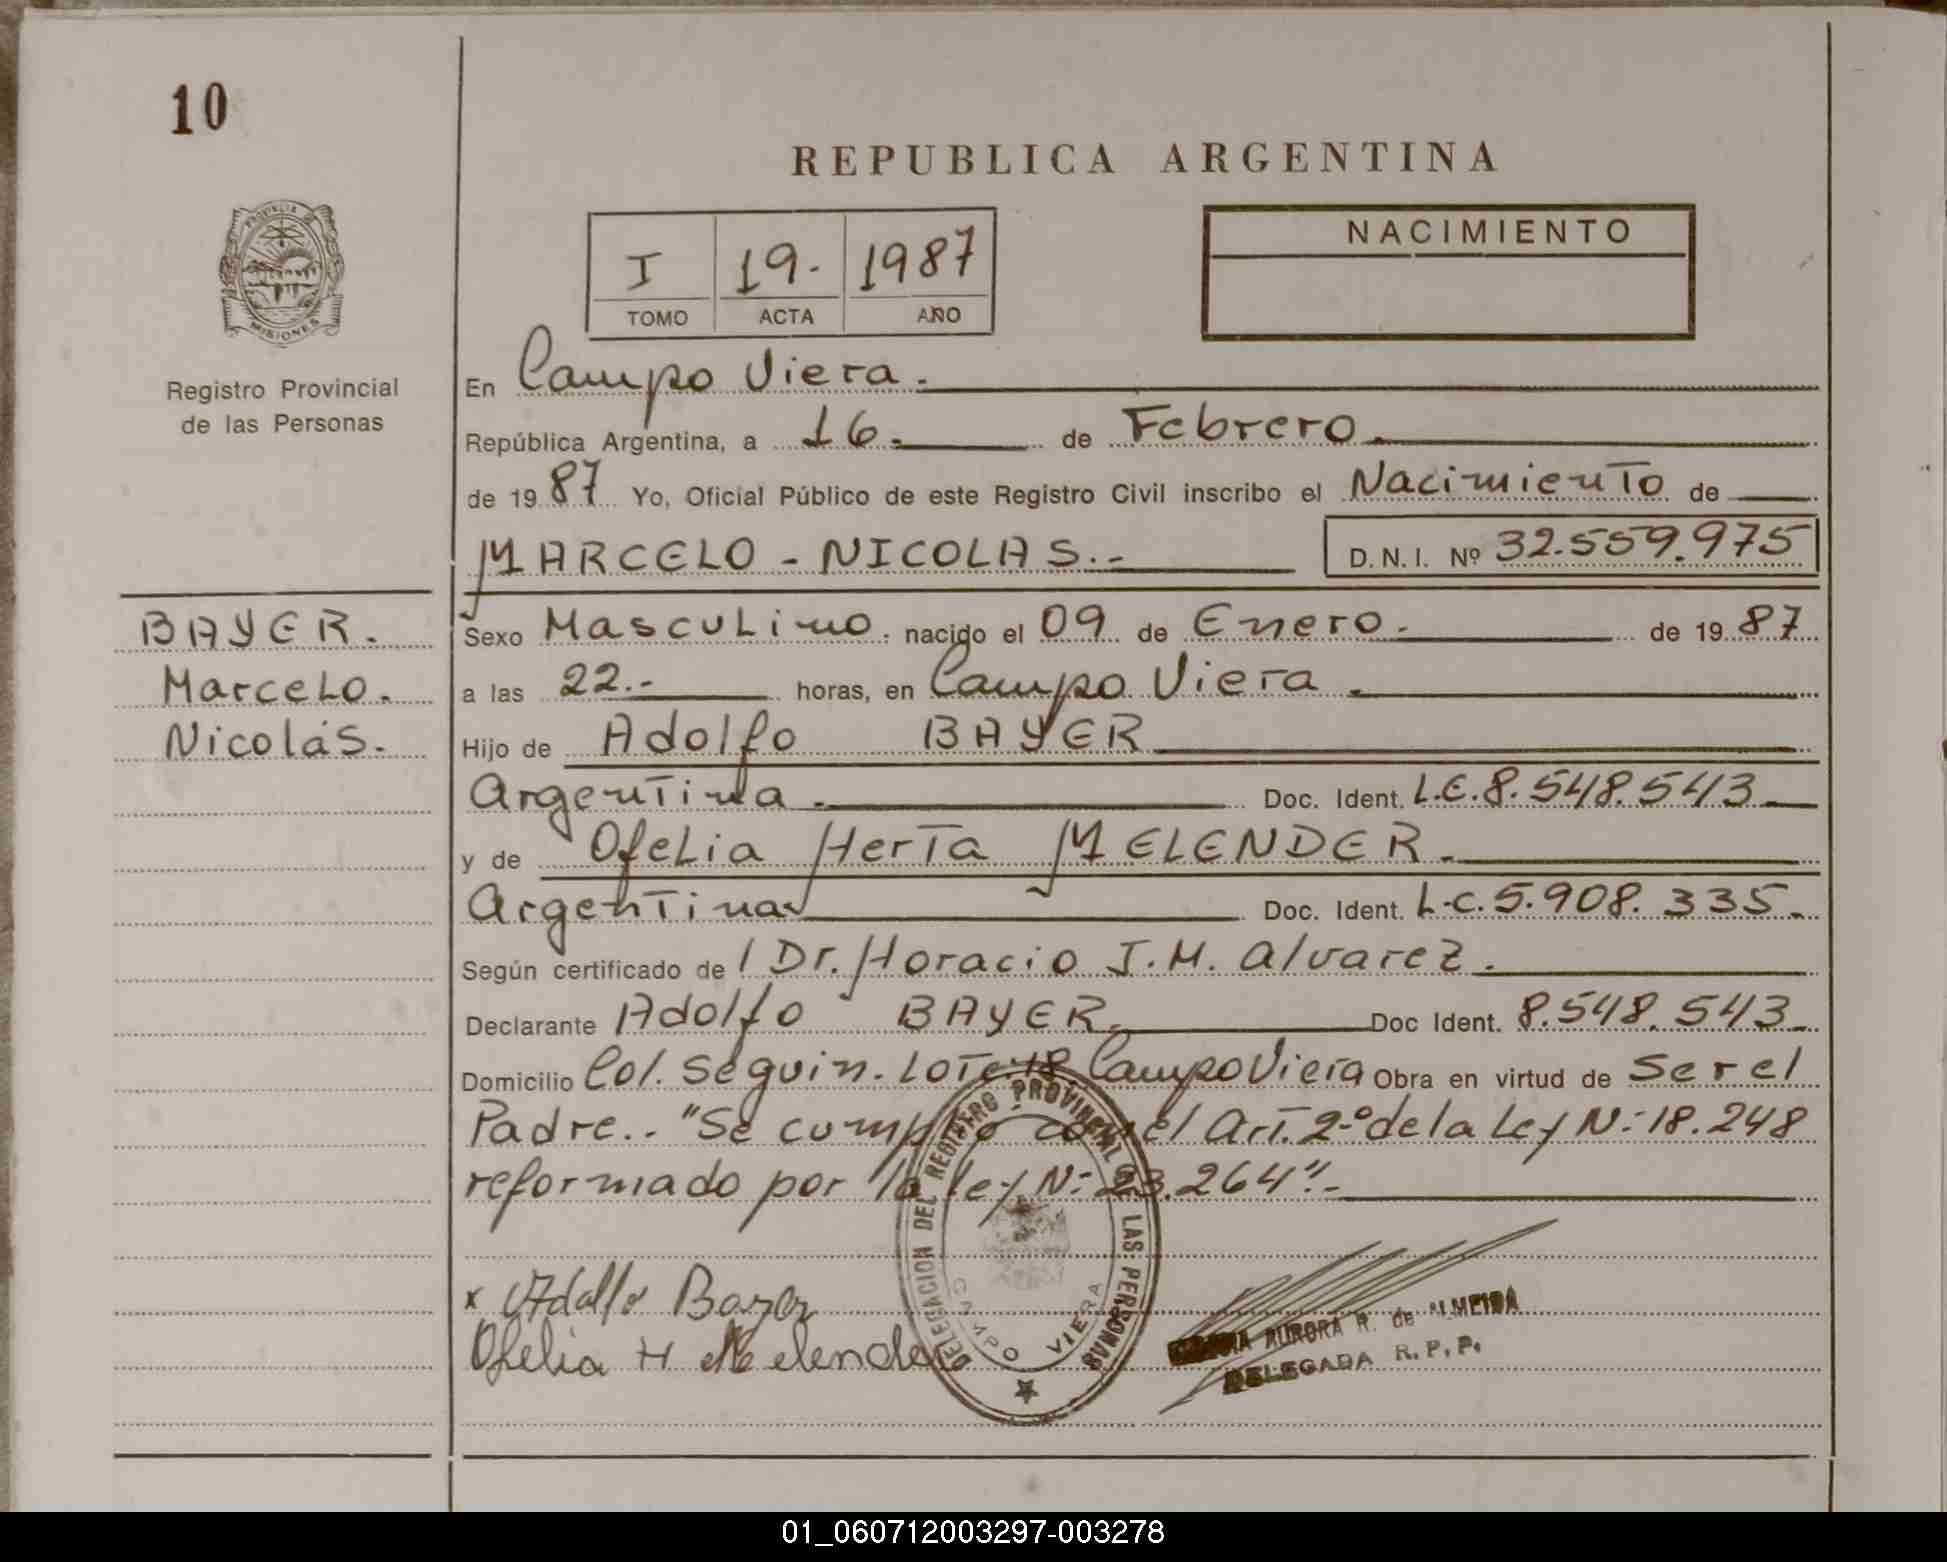 10
REPUBLICA ARGENTINA
PROVINCIA DE
MISIONES
Registro Provincial
de las Personas
I 19. 1987
TOMO ACTA AÑO
NACIMIENTO
En Campo Viera.
República Argentina, a 16. de Febrero.
de 1987 Yo, Oficial Público de este Registro Civil inscribo el Nacimiento de
MARCELO - NICOLAS.- D.N.I. Nº 32.559.975
BAYER.
Marcelo.
Nicolás.
Sexo Masculino. nacido el 09 de Enero. de 1987
a las 22.- horas, en Campo Viera.
Hijo de Adolfo BAYER
Argentina. Doc. Ident. L.E.8.548.543
y de Ofelia Herta MELENDER.
Argentina Doc. Ident. L.C.5.908.335.
Según certificado de / Dr. Horacio J.M. Alvarez.
Declarante Adolfo BAYER. Doc Ident. 8.548.543
Domicilio Col. Seguin. Lote:18 Campo Viera Obra en virtud de Ser el
Padre.. "Se cumplió con el Art. 2º de la Ley N: 18.248
reformado por la ley N: 23.264".-
x Adolfo Bayer
Ofelia H Melender
DELEGACION DEL REGISTRO PROVINCIAL DE LAS PERSONAS
CAMPO VIERA
AURORA R. de ALMEIDA
DELEGADA R.P.P.
01_060712003297-003278